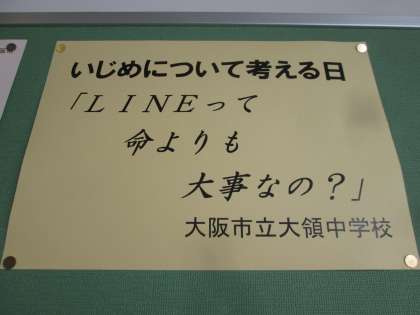 いじめについて考える日
「ＬＩＮＥって
命よりも
大事なの？」
大阪市立大領中学校